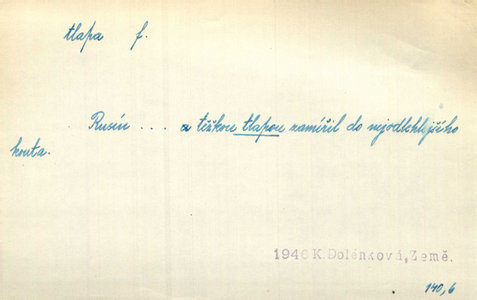 tlapa f.
Rusín .... a těžkou tlapou zamířil do nejodlehlejšího
kouta.
1946 K. Dolénková, Země.
140,6